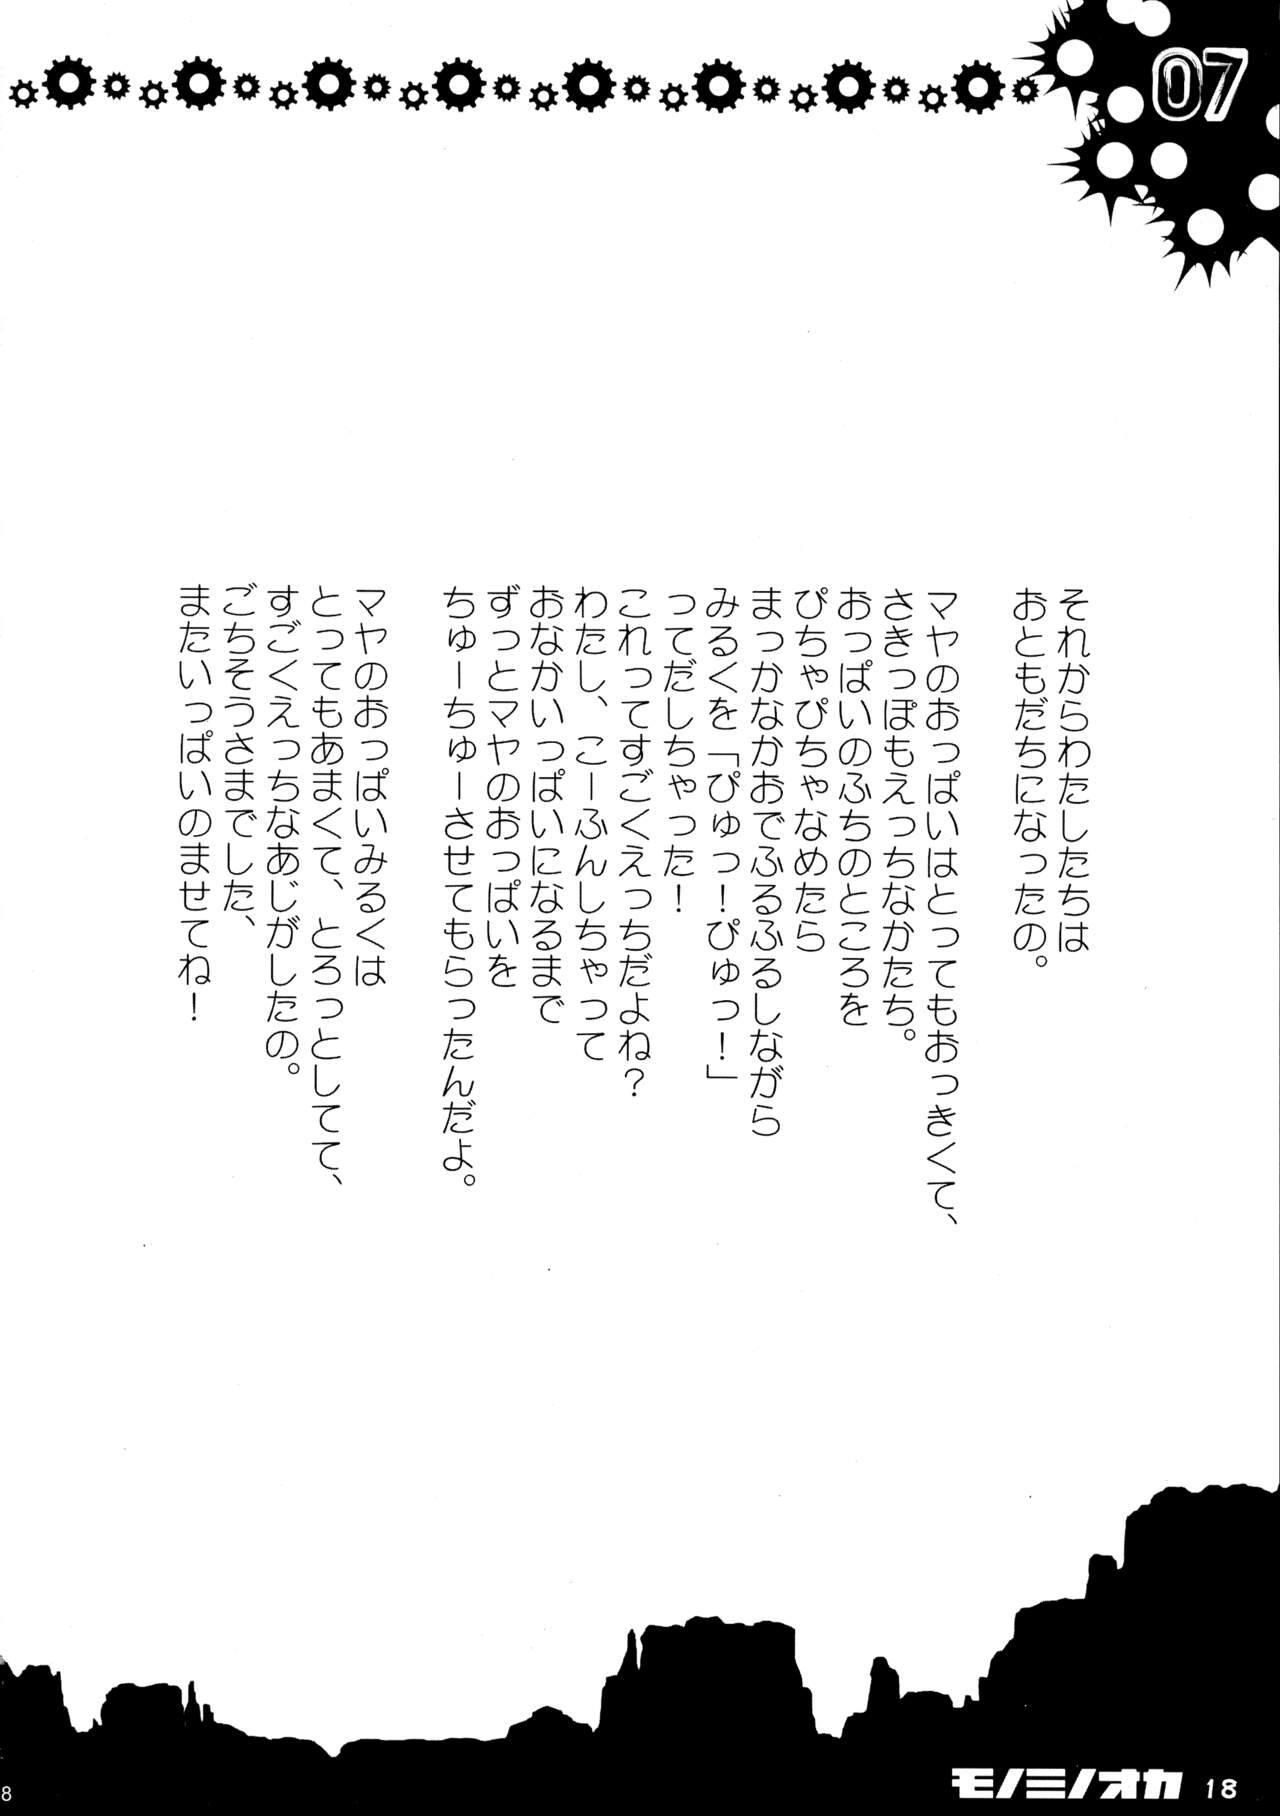 07
それからわたしたちは
おともだちになったの。
マヤのおっぱいはとってもおっきくて、
さきっぽもえっちなかたち。
おっぱいのふちのところを
ぴちゃぴちゃなめたら
まっかなかおでふるふるしながら
みるくを「ぴゅっ！ぴゅっ！」
ってだしちゃった！
これってすごくえっちだよね？
わたし、こーふんしちゃって
おなかいっぱいになるまで
ずっとマヤのおっぱいを
ちゅーちゅーさせてもらったんだよ。
マヤのおっぱいみるくは
とってもあまくて、とろっとしてて、
すごくえっちなあじがしたの。
ごちそうさまでした、
またいっぱいのませてね！
モノミノオカ 18
8